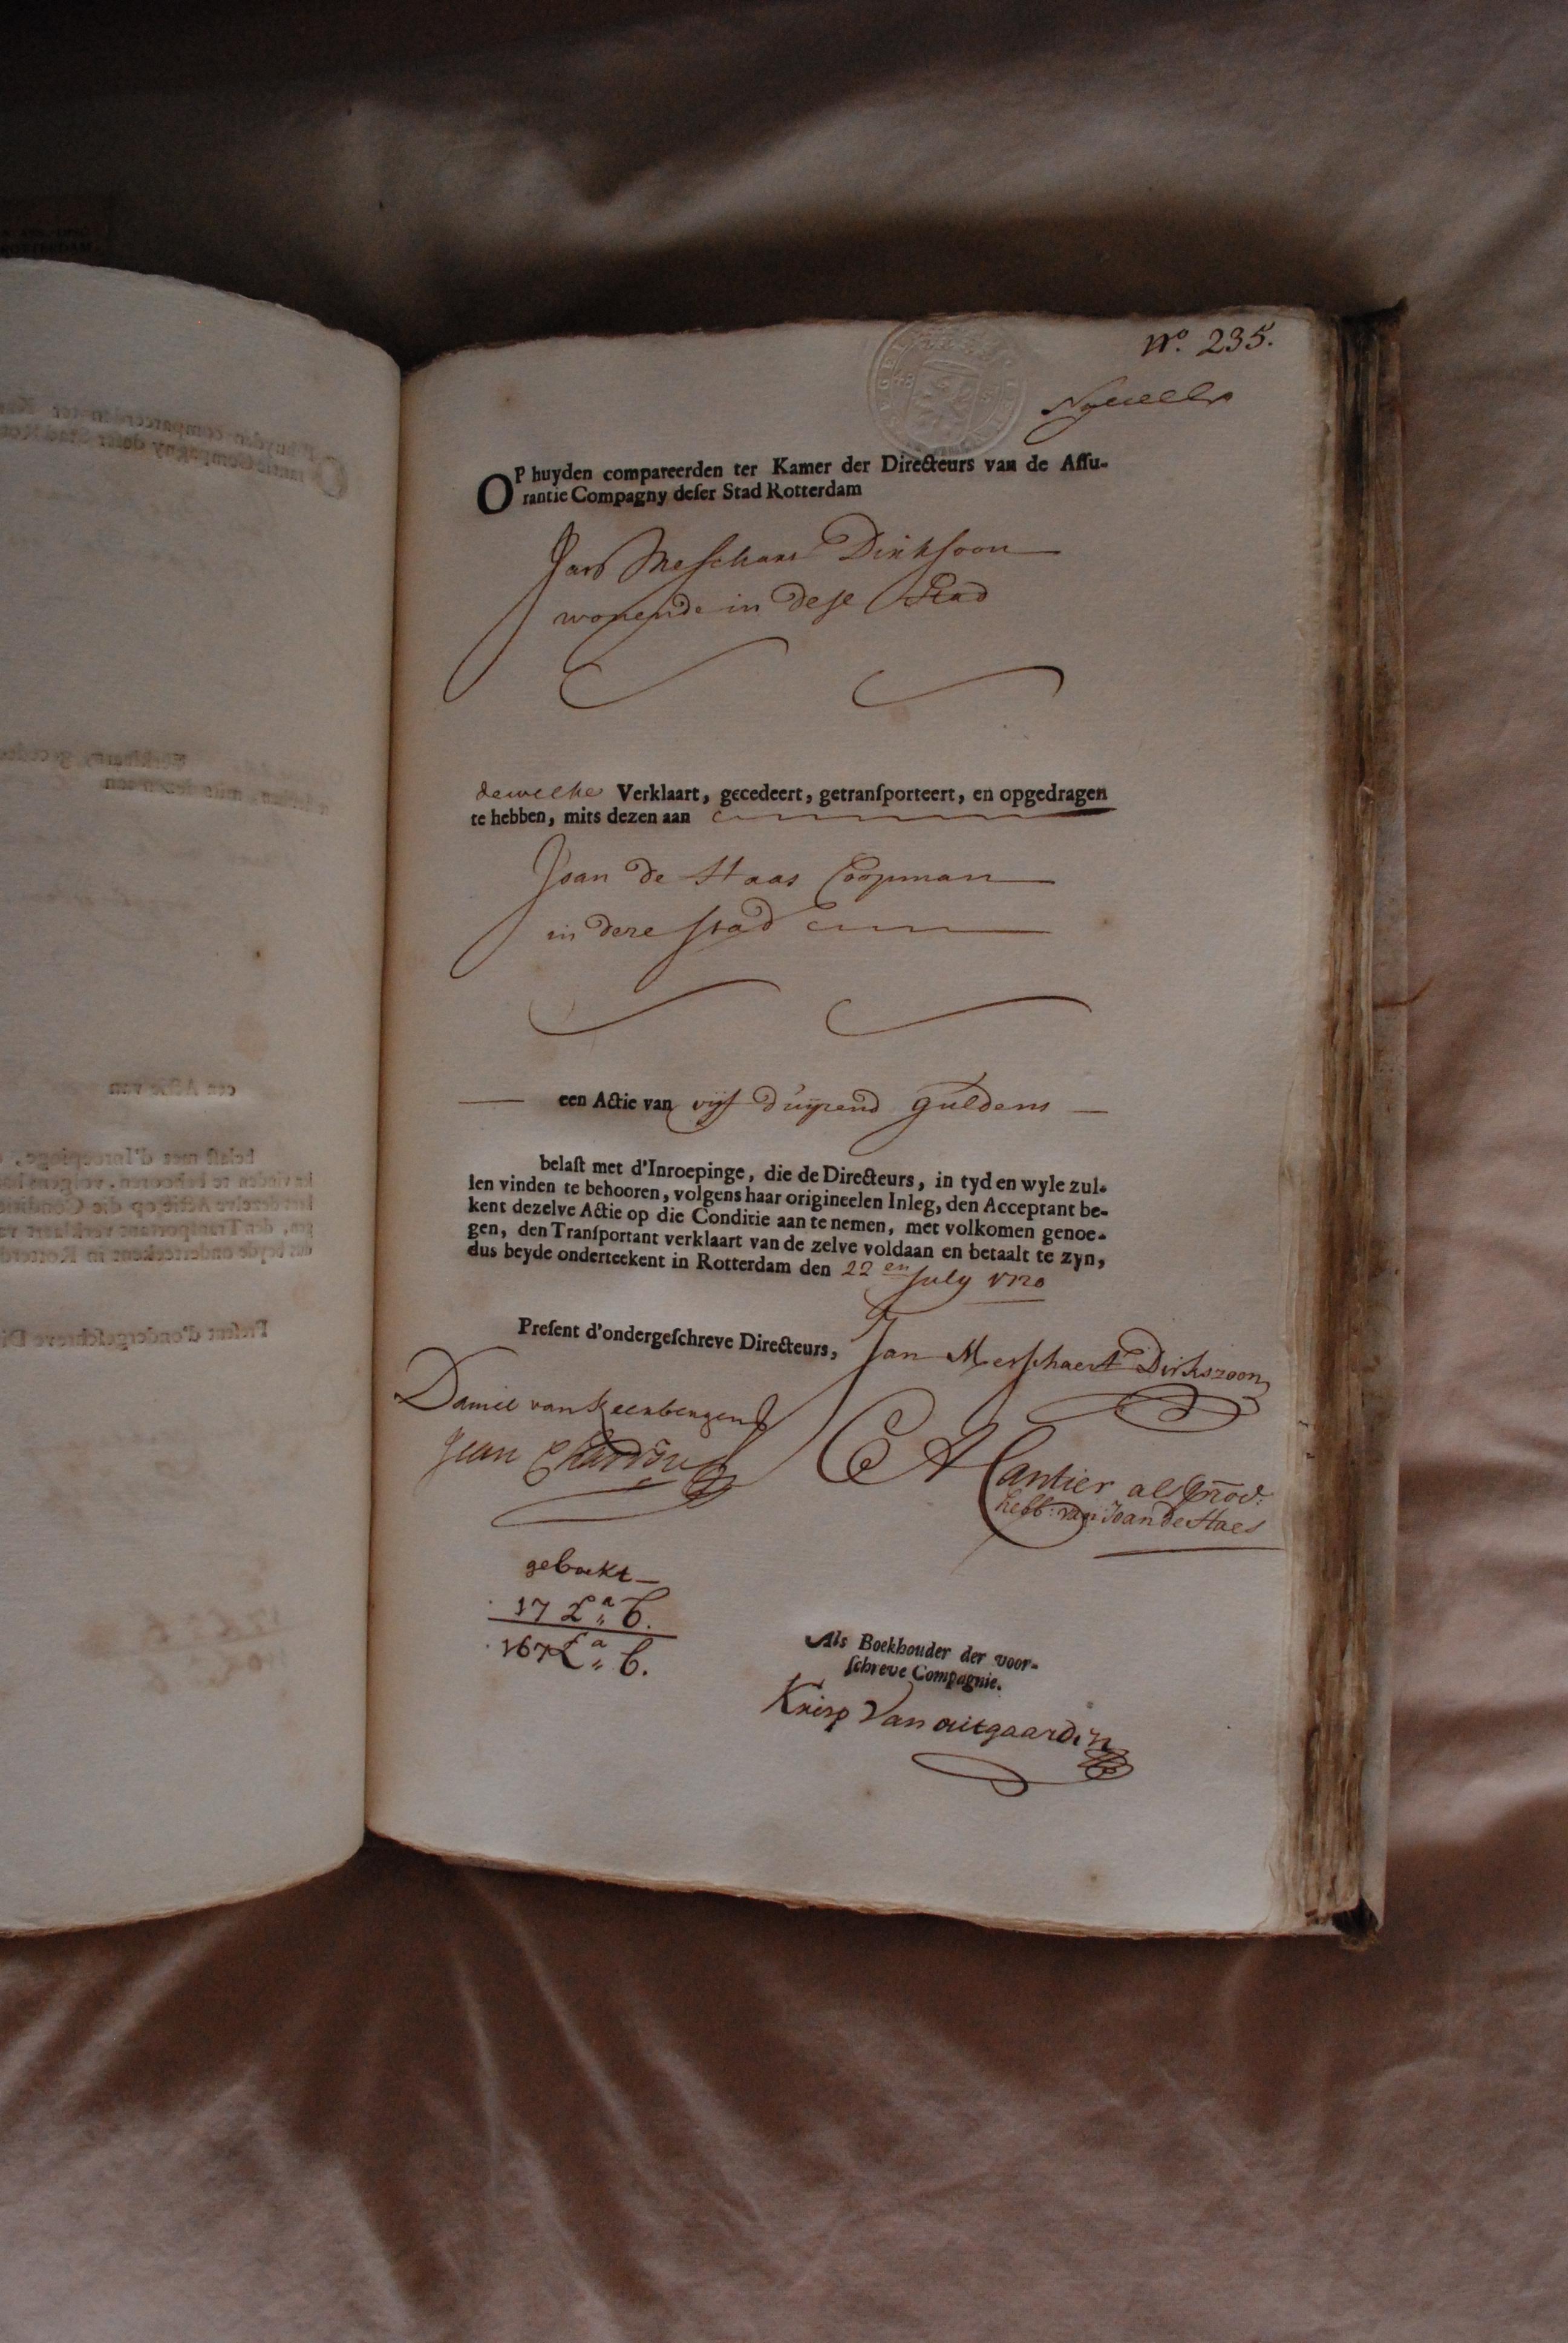 Nº. 235.
OP huyden compareerden ter Kamer der Directeurs van de Aſſu-
rantie Compagny deſer Stad Rotterdam
Jan Meſchaert Dirkſoon
wonende in deſe Stad
dewelke Verklaart, gecedeert, getranſporteert, en opgedragen
te hebben, mits dezen aan
Joan de Haas Coopman
in deze ſtad
een Actie van vijf duÿzend guldens
belaſt met d'Inroepinge, die de Directeurs, in tyd en wyle zul-
len vinden te behooren, volgens haar origineelen Inleg, den Acceptant be-
kent dezelve Actie op die Conditie aan te nemen, met volkomen genoe-
gen, den Tranſportant verklaart van de zelve voldaan en betaalt te zyn,
dus beyde onderteekent in Rotterdam den 22 en July 1720
Preſent d'ondergeſchreve Directeurs,
Jan Meſſchaert Dirkszoon
Daniel van
Jean
Cantier als
hebb: van Joan de Haes
geboekt
17 Lª B.
167 Lª B.
Als Boekhouder der voor-
ſchreve Compagnie.
Krisp Van